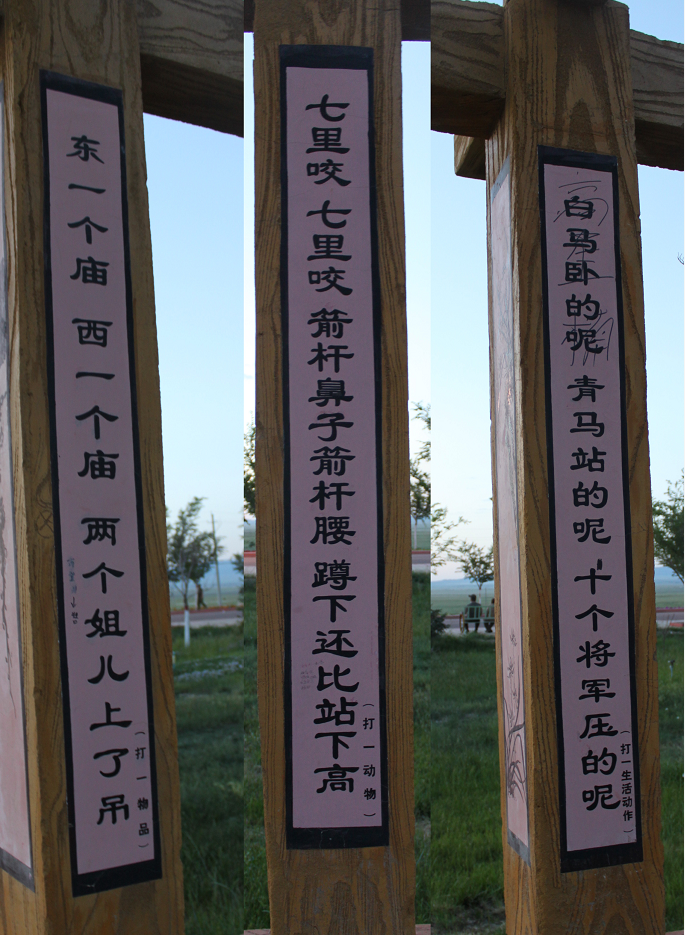 东一个庙 西一个庙 两个姐儿上了吊
（打一物品）
七里咬 七里咬 箭杆鼻子箭杆腰 蹲下还比站下高
（打一动物）
白马卧的呢 青马站的呢 十个将军压的呢
（打一生活动作）